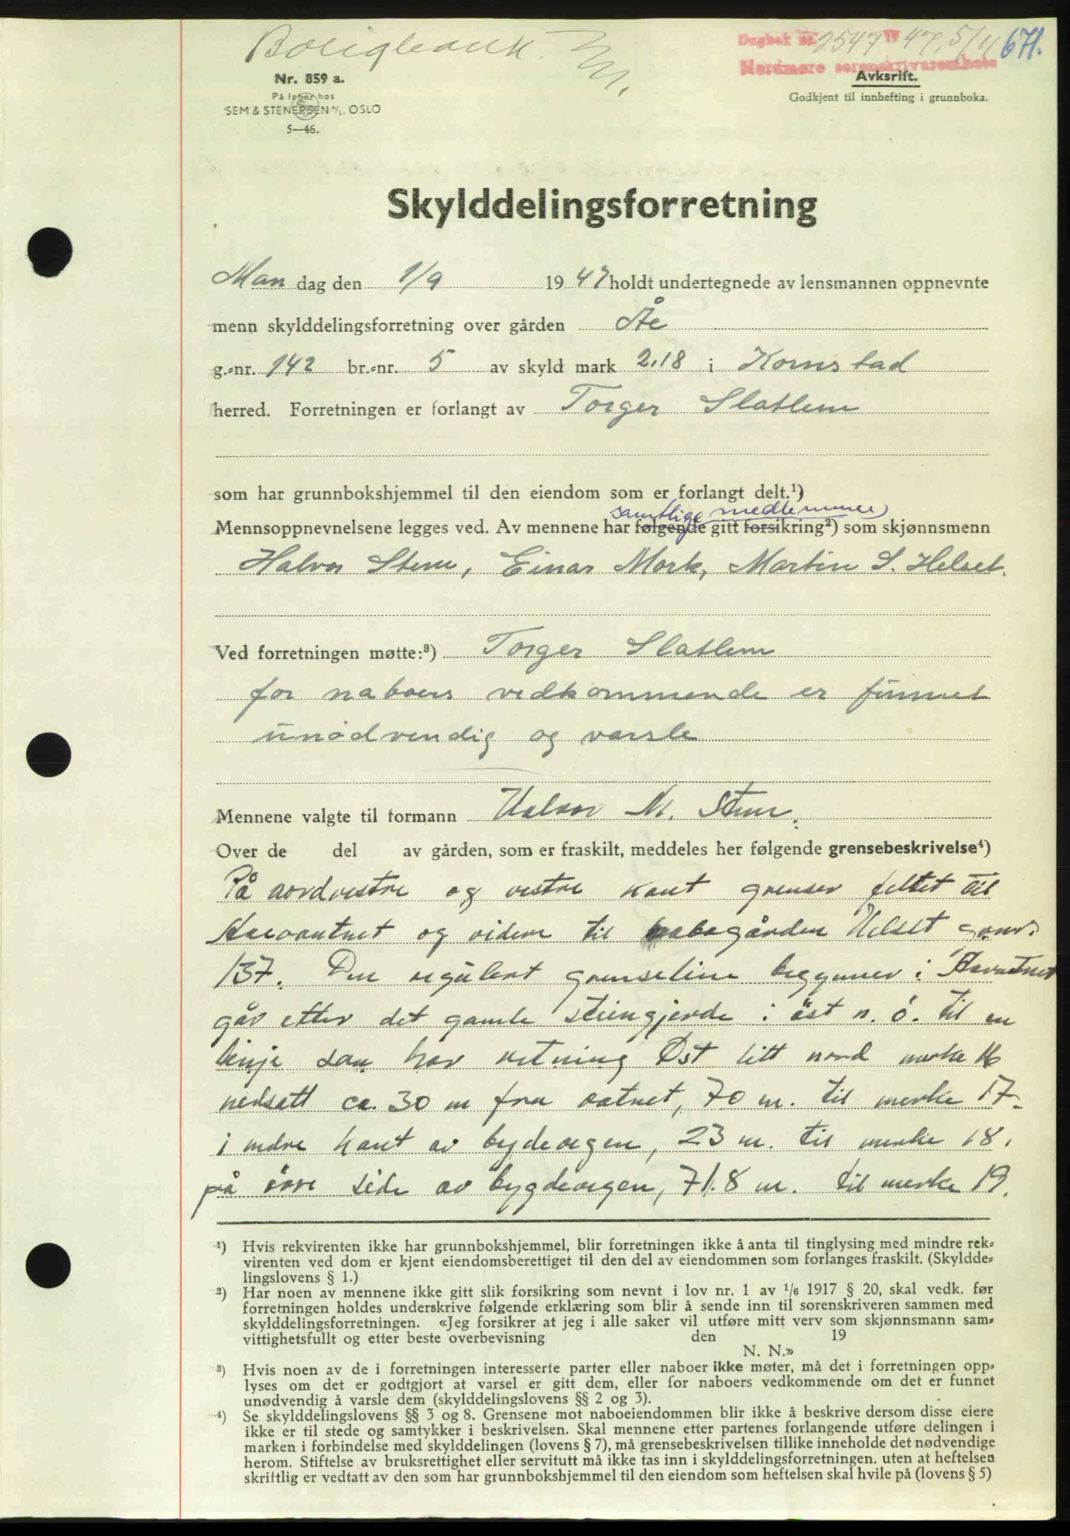 Boligbank. M.
Dagbok nr. 2547 19 47, 5/11 671.
Nordmøre sorenskriverembete
Nr. 859 a.
På lager hos
SEM & STENERSEN A/S, OSLO
5—46.
Avkskrift.
Godkjent til innhefting i grunnboka.
Skylddelingsforretning
Man dag den 1/9 1947 holdt undertegnede av lensmannen oppnevnte
menn skylddelingsforretning over gården Åe
g.-nr. 142 br.-nr. 5 av skyld mark 2.18 i Kornstad
herred. Forretningen er forlangt av Torger Slatlem
som har grunnbokshjemmel til den eiendom som er forlangt delt.¹)
samtlige medlemmer
Mennsoppnevnelsene legges ved. Av mennene har følgende gitt forsikring²) som skjønnsmenn
Halvor Stene, Einar Mork, Martin S. Helset.
Ved forretningen møtte:³) Torger Slatlem
for naboers vedkommende er funnet
unødvendig og varsle
Mennene valgte til formann Halvor N. Stene.
Over de del av gården, som er fraskilt, meddeles her følgende grensebeskrivelse⁴)
På nordvestre og vestre kant grenser feltet til
og videre til nabogården Helset gnr.
137. Den regulert grenselinie begynner i
går etter det gamle steingjerde i øst n. ö. til en
linje som har retning Øst litt nord merke 16
nedsatt ca. 30 m fra vatnet, 70 m. til merke 17.
i indre kant av bygdevegen, 23 m. til merke 18,
på övre side av bygdevegen, 71.8 m. til merke 19.
¹) Hvis rekvirenten ikke har grunnbokshjemmel, blir forretningen ikke å anta til tinglysing med mindre rek-
virenten ved dom er kjent eiendomsberettiget til den del av eiendommen som forlanges fraskilt. (Skyldde-
lingslovens § 1.)
²) Har noen av mennene ikke gitt slik forsikring som nevnt i lov nr. 1 av 1/6 1917 § 20, skal vedk. før
forretningen holdes underskrive følgende erklæring som blir å sende inn til sorenskriveren sammen med
skylddelingsforretningen. «Jeg forsikrer at jeg i alle saker vil utføre mitt verv som skjønnsmann sam-
vittighetsfullt og etter beste overbevisning den 19
N. N.»
³) Hvis noen av de i forretningen interesserte parter eller naboer ikke møter, må det i forretningen opp-
lyses om det er godtgjort at varsel er gitt dem, eller for naboers vedkommende om det er funnet
unødvendig å varsle dem (skylddelingslovens §§ 2 og 3).
⁴) Se skylddelingslovens §§ 3 og 8. Grensene mot naboeiendommen blir ikke å beskrive dersom disse eiere
ikke er til stede og samtykker i beskrivelsen. Skal mennene etter partenes forlangende utføre delingen i
marken i forbindelse med skylddelingen (lovens § 7), må grensebeskrivelsen tillike inneholde det nødvendige
herom. Stiftelse av bruksrettighet eller servitutt må ikke tas inn i skylddelingsforretningen. uten at heftelsen
skriftlig er vedtatt av den som har grunnbokshjemmel til den eiendom som heftelsen skal hvile på (lovens § 5)